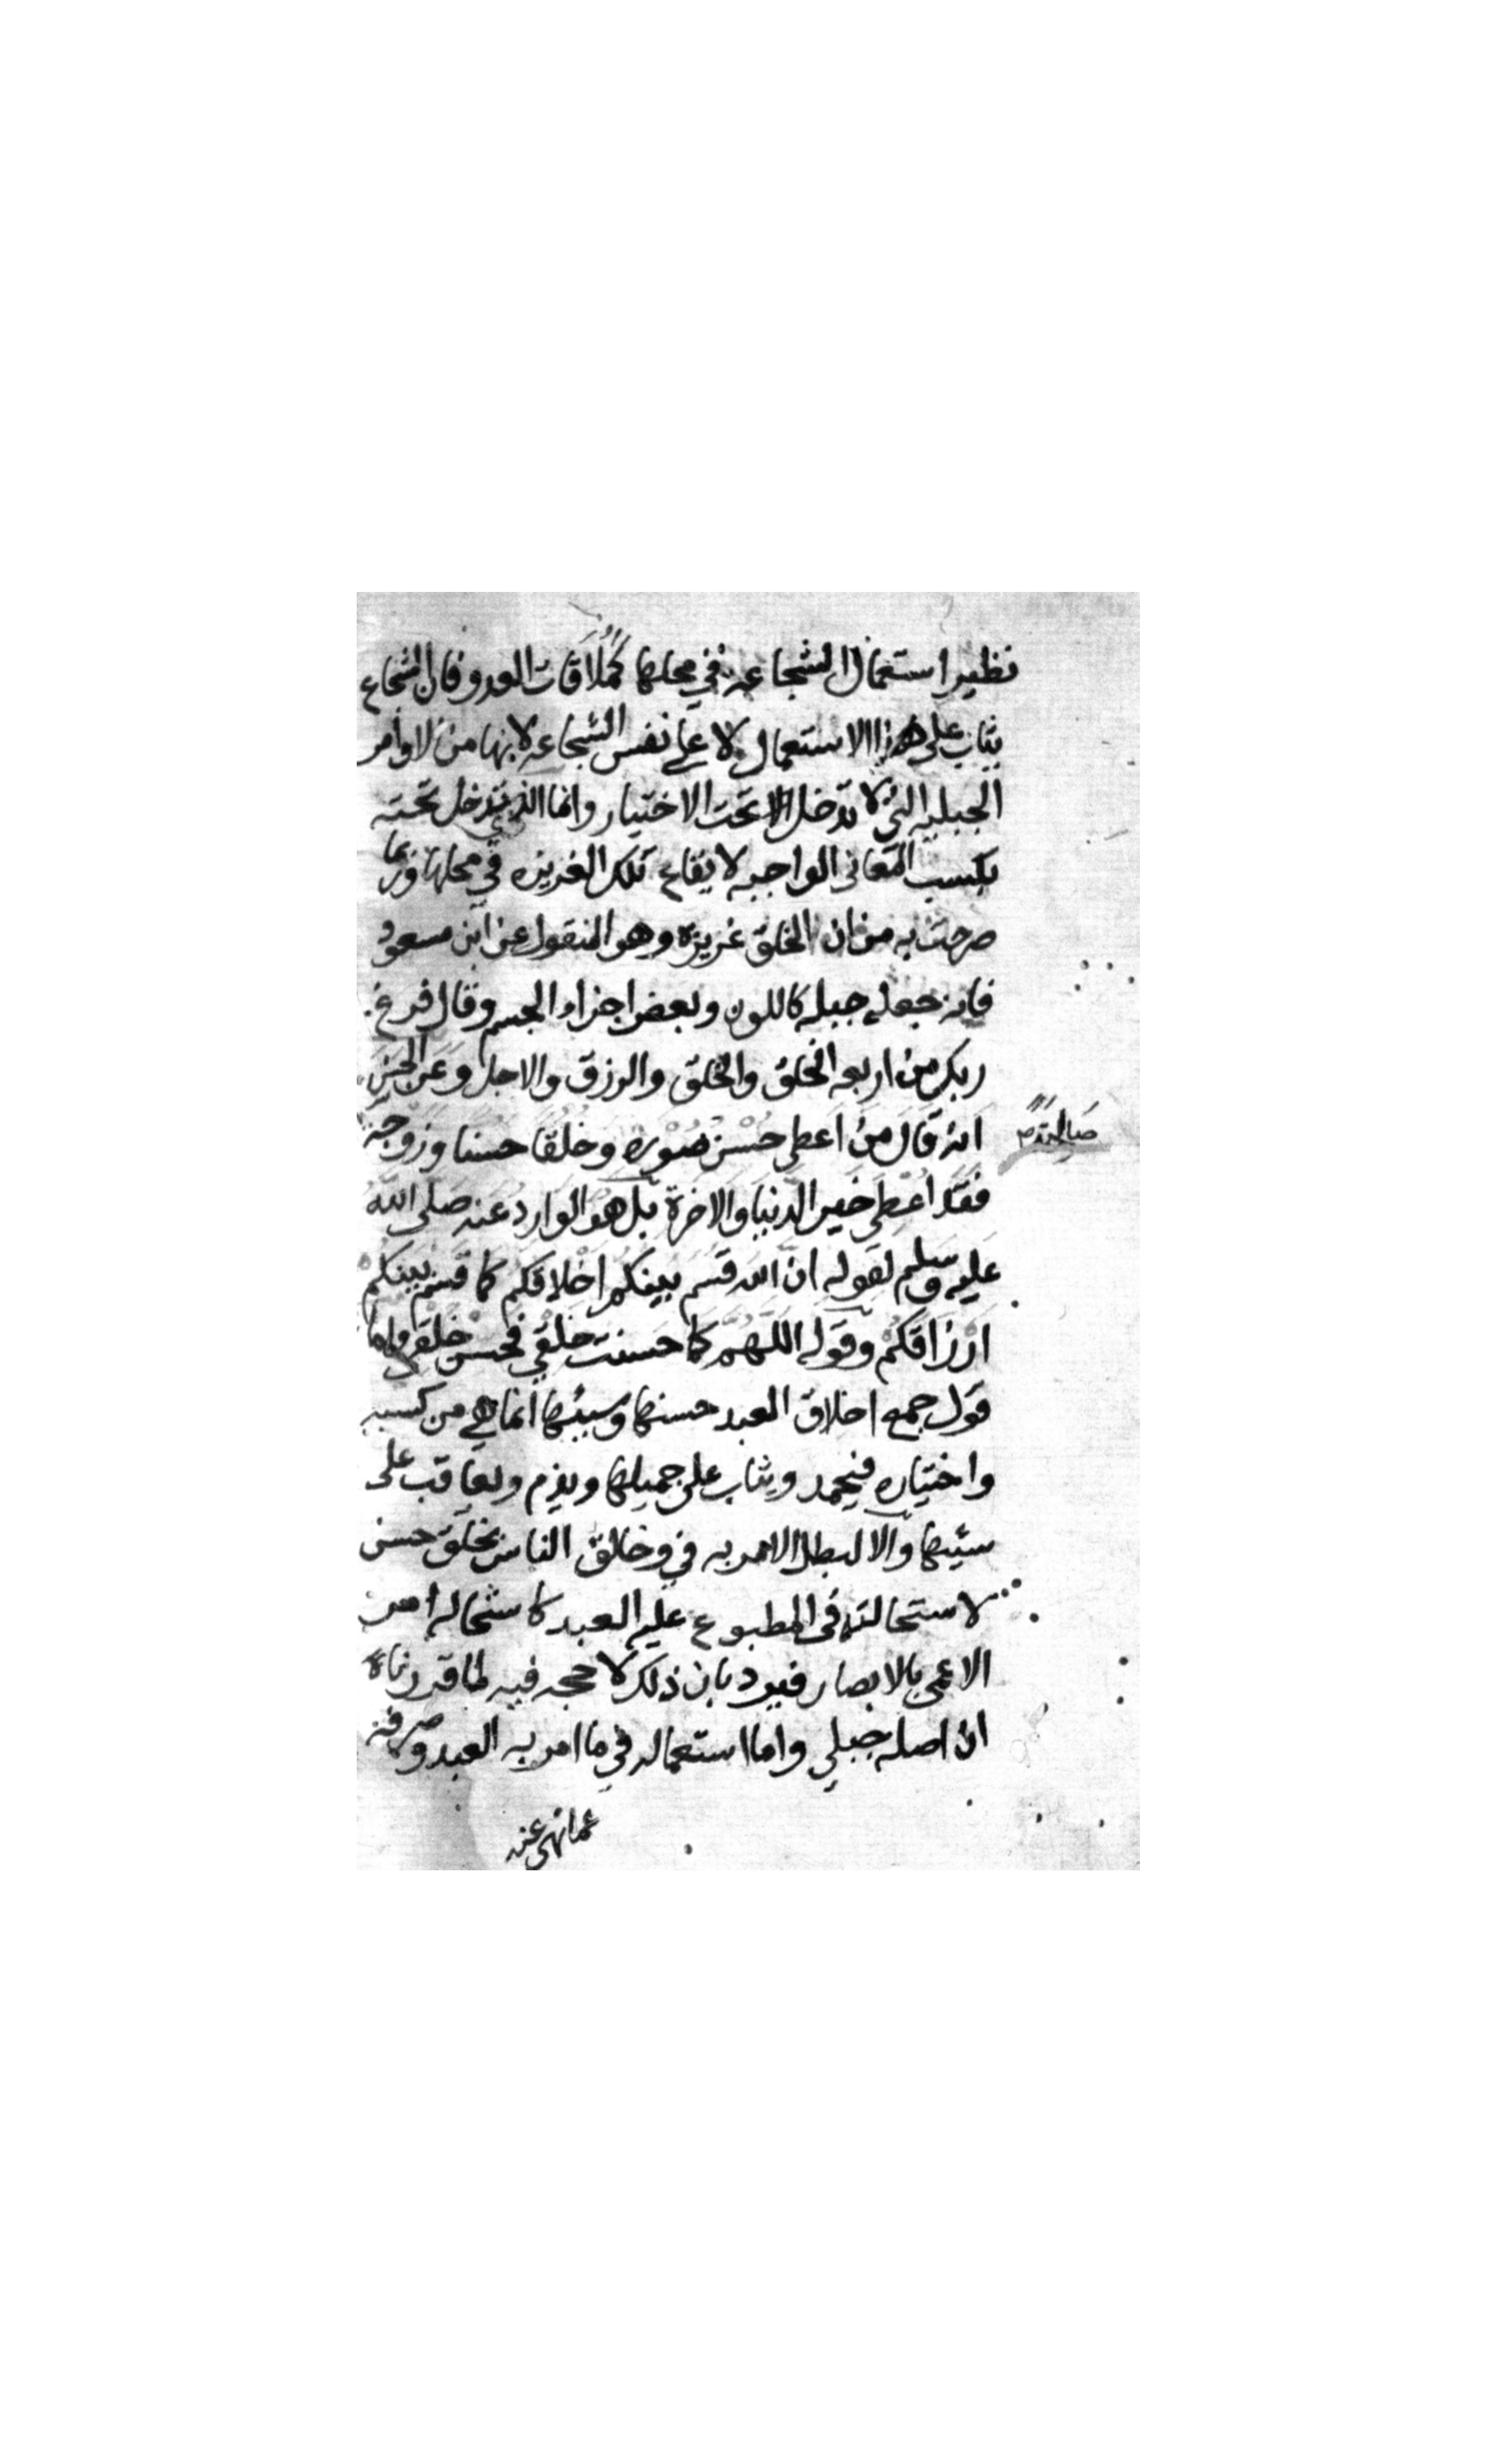 نظير استعمال الشجاعه في محلها كملاقات العدو فان الشجاع
يثاب على هذا الاستعمال لا على نفس الشجاعه لانها من الاوامر
الجبليه التي لا تدخل تحت الاختيار وانما الذي تدخل تحته
بكسب المعاني الواجبه لايقاع تلك الغريزه في محلها وبما
صرحت به من ان الخلق غريزة وهو المنقول عن ابن مسعود
فانه جعله جبله كاللون وبعض اجزاء الجسم وقال فرغ
ربك من اربعه الخلق والخلق والرزق والاجل وعن الحسن
انه قال من اعطى حسن صوره وخلقا حسنا وزوجة
صالحة
فقد اعطي خير الدنيا والاخرة بل هو الوارد عنه صلى الله
عليه وسلم لقوله ان الله قسم بينكم اخلاقكم كما قسم بينكم
ارزاقكم وقوله اللهم كما حسنت خلقي فحسن خلقي واما
قول جمع اخلاق العبد حسنها وسيئها انما هي من كسبه
واختياره فيحمد ويثاب على جميلها ويذم ويعاقب على
سيئها والا لبطل الامر به في وخالق الناس بخلق حسن
لاستحالته في المطبوع عليه العبد كاستحاله امر
الاعمى بالابصار فيرد بان ذلك لا حجه فيه لما قدرناه
ان اصله جبلي واما استعماله في ما امر به العبد وصرفه
عما نهى عنه